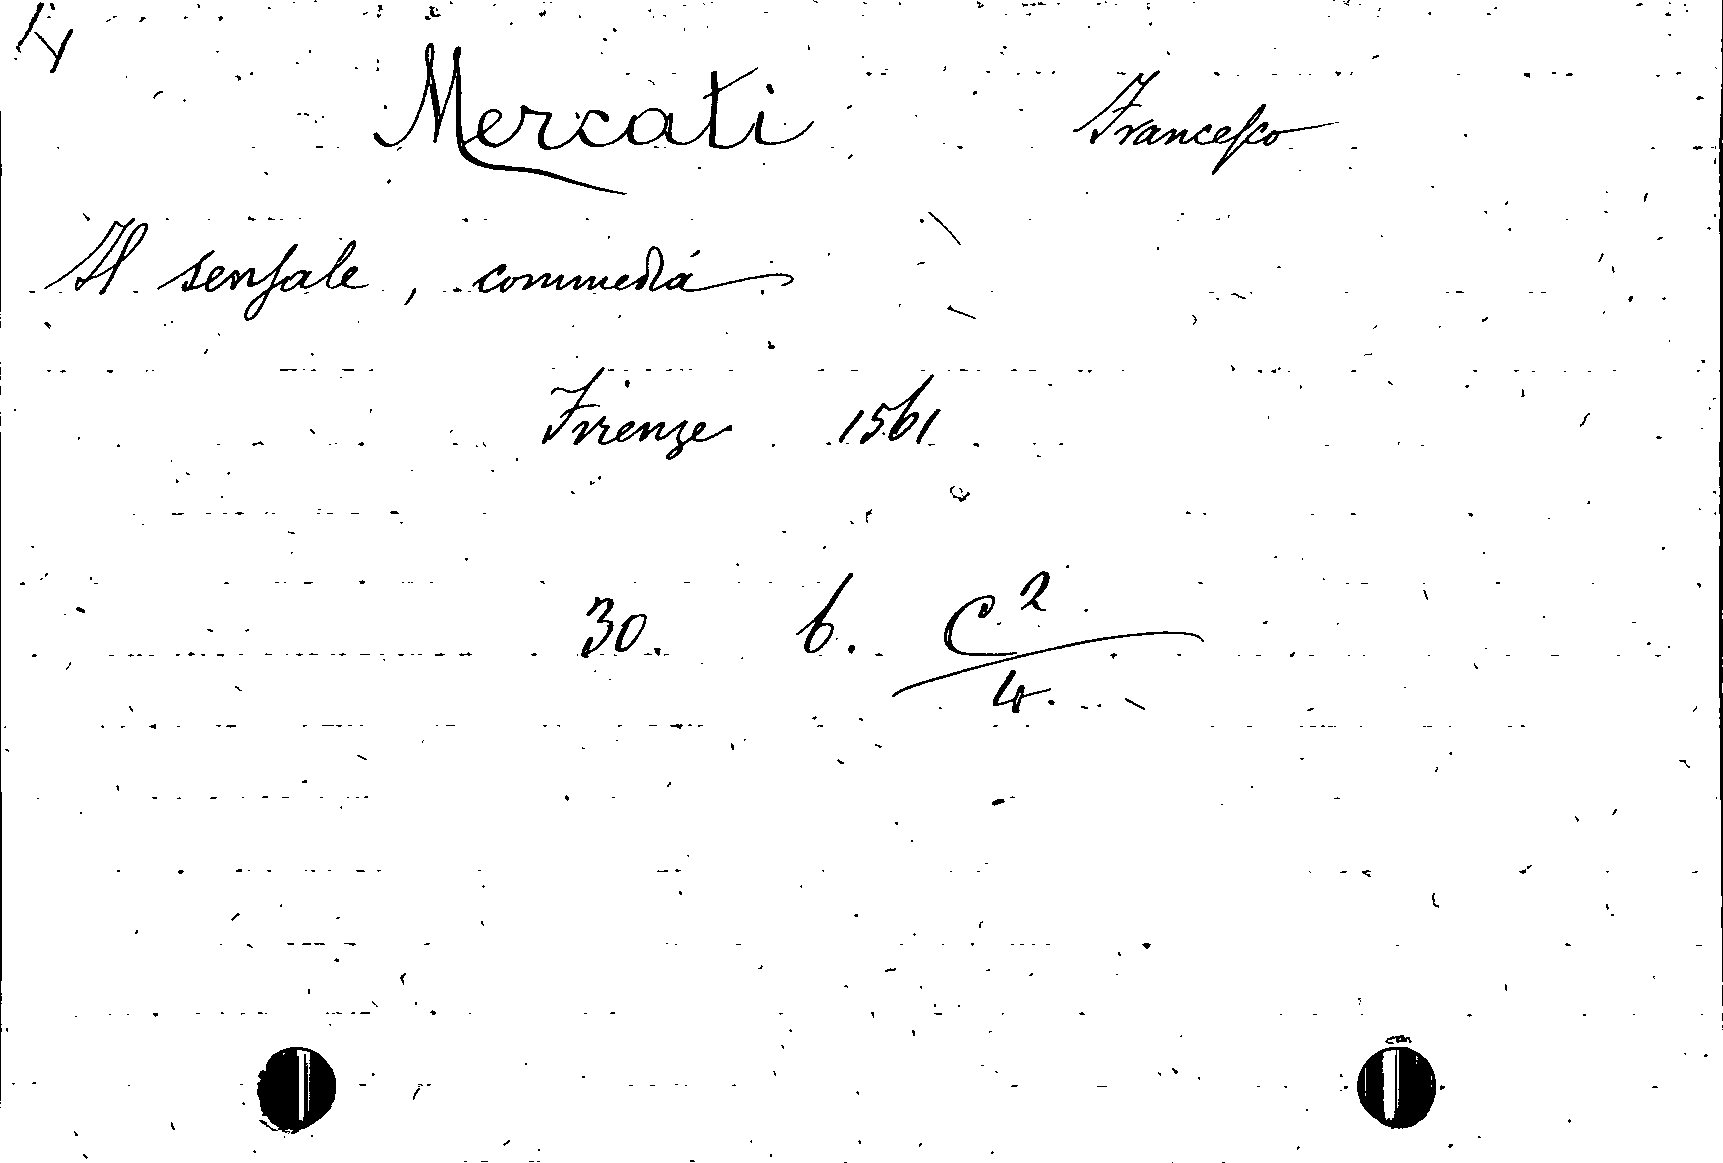 Mercati Francesco
Il sensale, commedia
Firenze 1561
30. 6. C²
4.